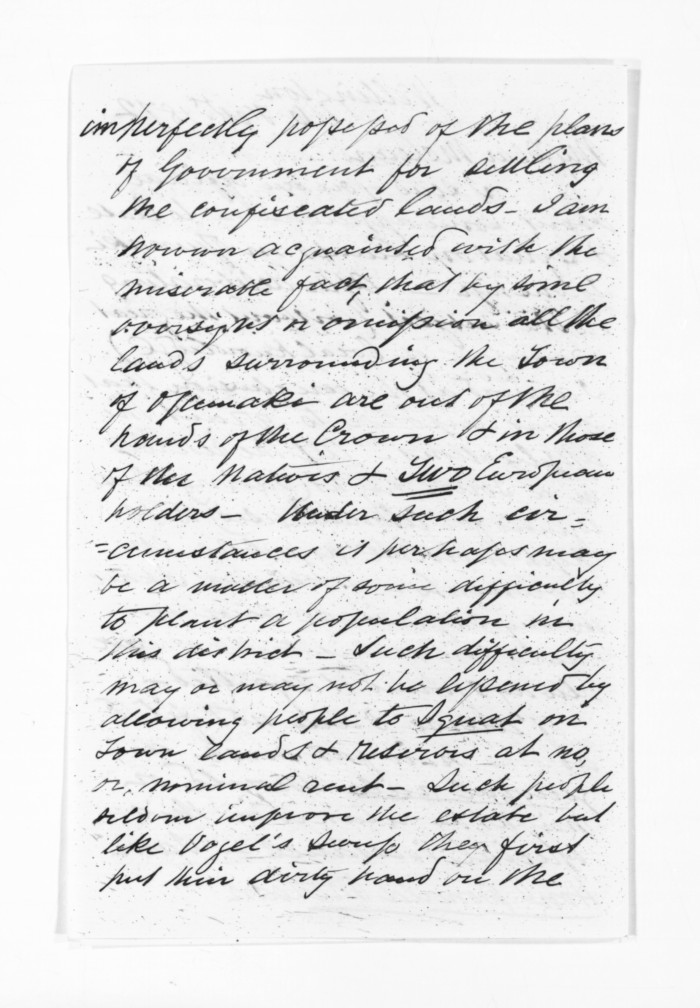 imperfectly possessed of the plans
of Government for settling
the confiscated lands - I am
however acquainted with the
miserable fact, that by some
oversight or omission all the
lands surrounding the Town
of Opunaki are out of the
hands of the Crown & in those
of the Natives & Two European
holders - Under such cir=
=cumstances it perhaps may
be a matter of some difficulty
to plant a population in
this district - Such difficulty
may or may not be lessened by
allowing people to Squat on
Town lands & reserves at no,
or, nominal rent - Such people
seldom improve the estate but
like Vogel's they first
put their dirty hand on the